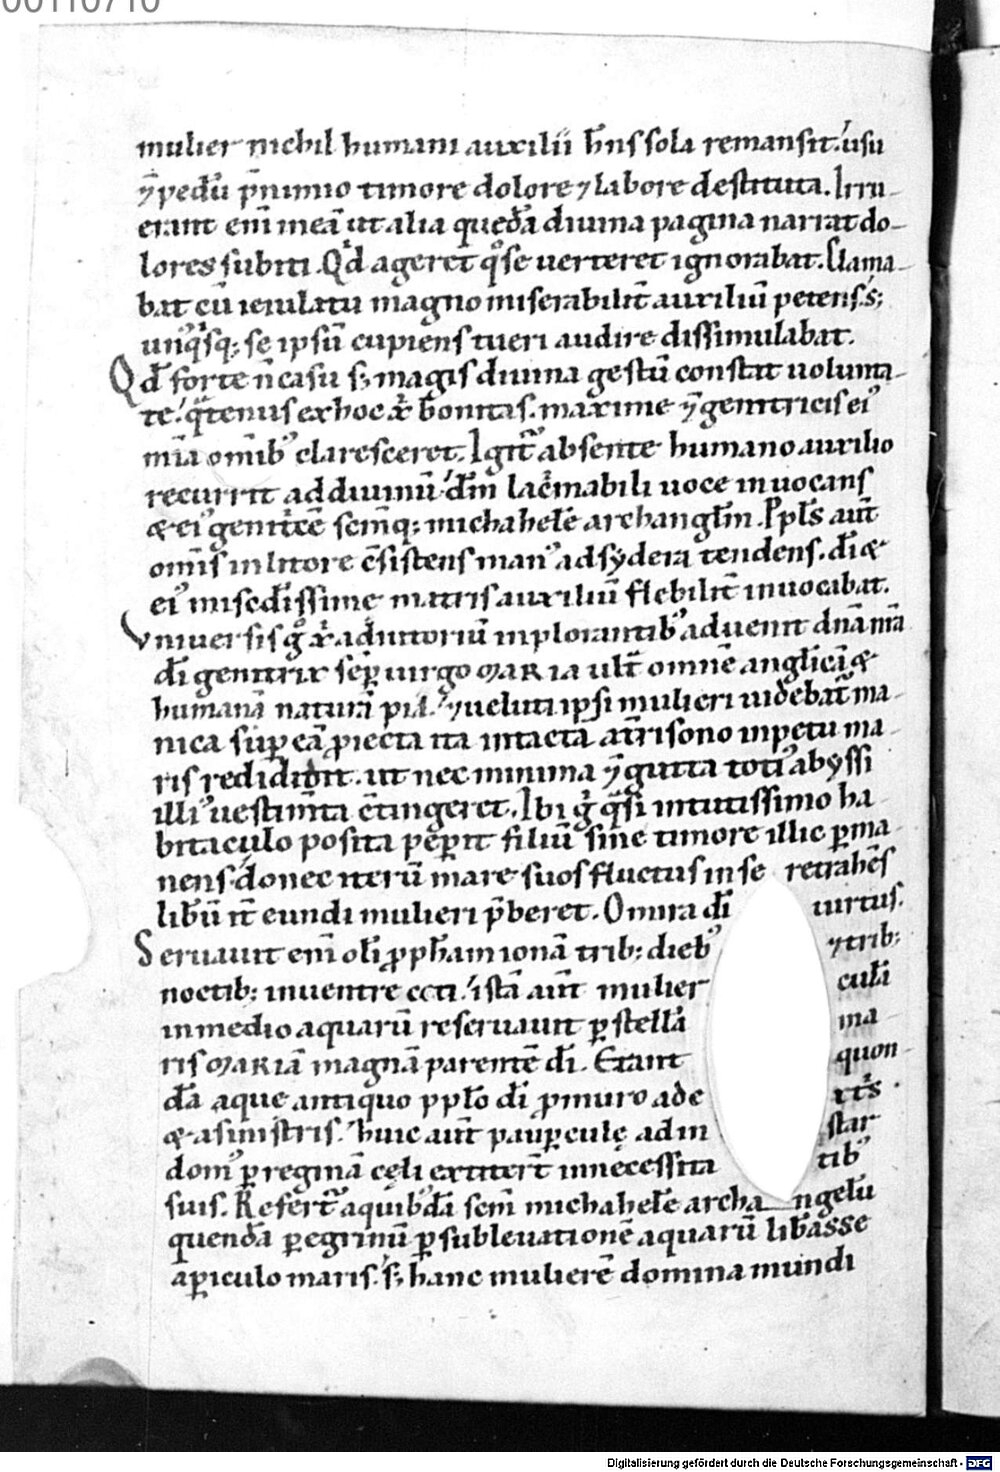 00110710
mulier nichil humani auxilii h̄ns sola remansit. usu
⁊ pedū p̄ nimio timore dolore ⁊ labore destituta. Irru-
erant eni᷒ in eā ut alia quedā diuina pagina narrat do-
lores subiti. Qd̄ ageret q̊ se uerteret ignorabat. Clama-
bat cū ieiulatu magno miserabilit̄ auxiliū petens. s;
unꝰqͥsq; se ipsū cupiens tueri audire dissimulabat.
Qd̄ forte n̄ casu s; magis diuina gestū constat uolunta-
te. qͣtenus ex hoc xp̄i bonitas. maxime ⁊ genitricis eiꝰ
mīa omībꝰ claresceret. Igit᷑ absente humano auxilio
recurrit ad diuinū. dn̄m lac̄mabili uoce inuocans
& eiꝰ genit̄cē sc̄mq; michahelē archangl̄m. Ppl̄s aut̄
omīs in litore c̄sistens manꝰ ad sydera tendens. dī &
eiꝰ misc̄dissime matris auxiliū flebilit̄ inuocabat.
Vniuersis g̊ xp̄i adiutoriū inplorantibꝰ aduenit dn̄a nr̄a
dī genitrix sēp uirgo MARIA ult̄ omnē anglīcā &
humanā naturā pia. ⁊ ueluti ipsi mulieri uidebat᷑ ma-
nica sup̱ eā ꝓiecta ita intactā at̄risono inpetu ma-
ris redidit. ut nec minima ⁊ gutta totiꝰ abyssi
illiꝰ uestim̄ta c̄tingeret. Ibi g̊ qͣsi in tutissimo ha-
bitaculo posita pep̱it filiū sine timore illic p̱ma-
nens. donec iterū mare suos fluctus in se retrahēs
lib̄ū it̄ eundi mulieri p̄beret. O mira dī uirtus.
Seruauit eni᷒ olī ꝓph̄am ionā trib; diebꝰ ⁊ trib;
noctib; in uentre ceti. istā aut̄ mulier culā
in medio aquarū reseruauit p̱ stellā ma
ris MARIĀ magnā parentē dī. Erant quon
dā aque antiquo ppl̄o dī ꝓ muro a de xt̄s
& a sinistris. huic aut̄ paup̱cule ad in star
domꝰ p̱ reginā cęli extiter̄t in necessita tibꝰ
suis. Refert᷑ a quibꝰdā sc̄m michahelē archa ngelū
quendā p̱egrinū p̱ subleuationē aquarū lib̄asse
a p̱iculo maris. s; hanc mulierē domina mundi
Digitalisierung gefördert durch die Deutsche Forschungsgemeinschaft - DFG